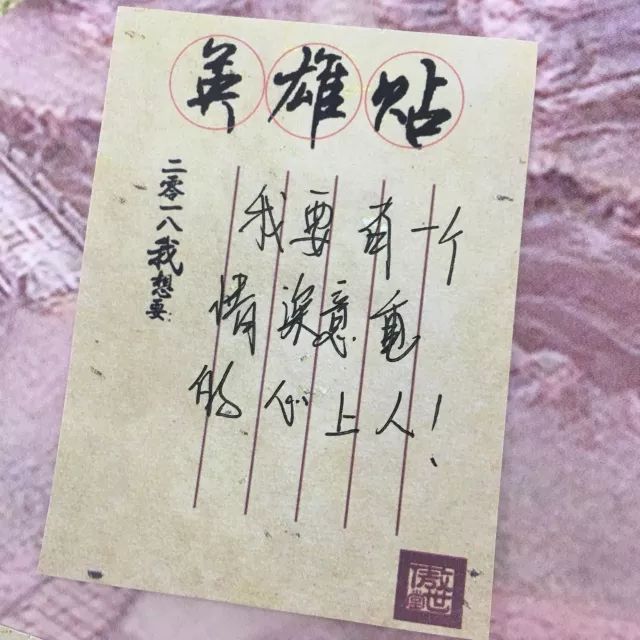 英雄贴
二零一八我想要
我要有一个
情深意重
的心上人！
傲世堂